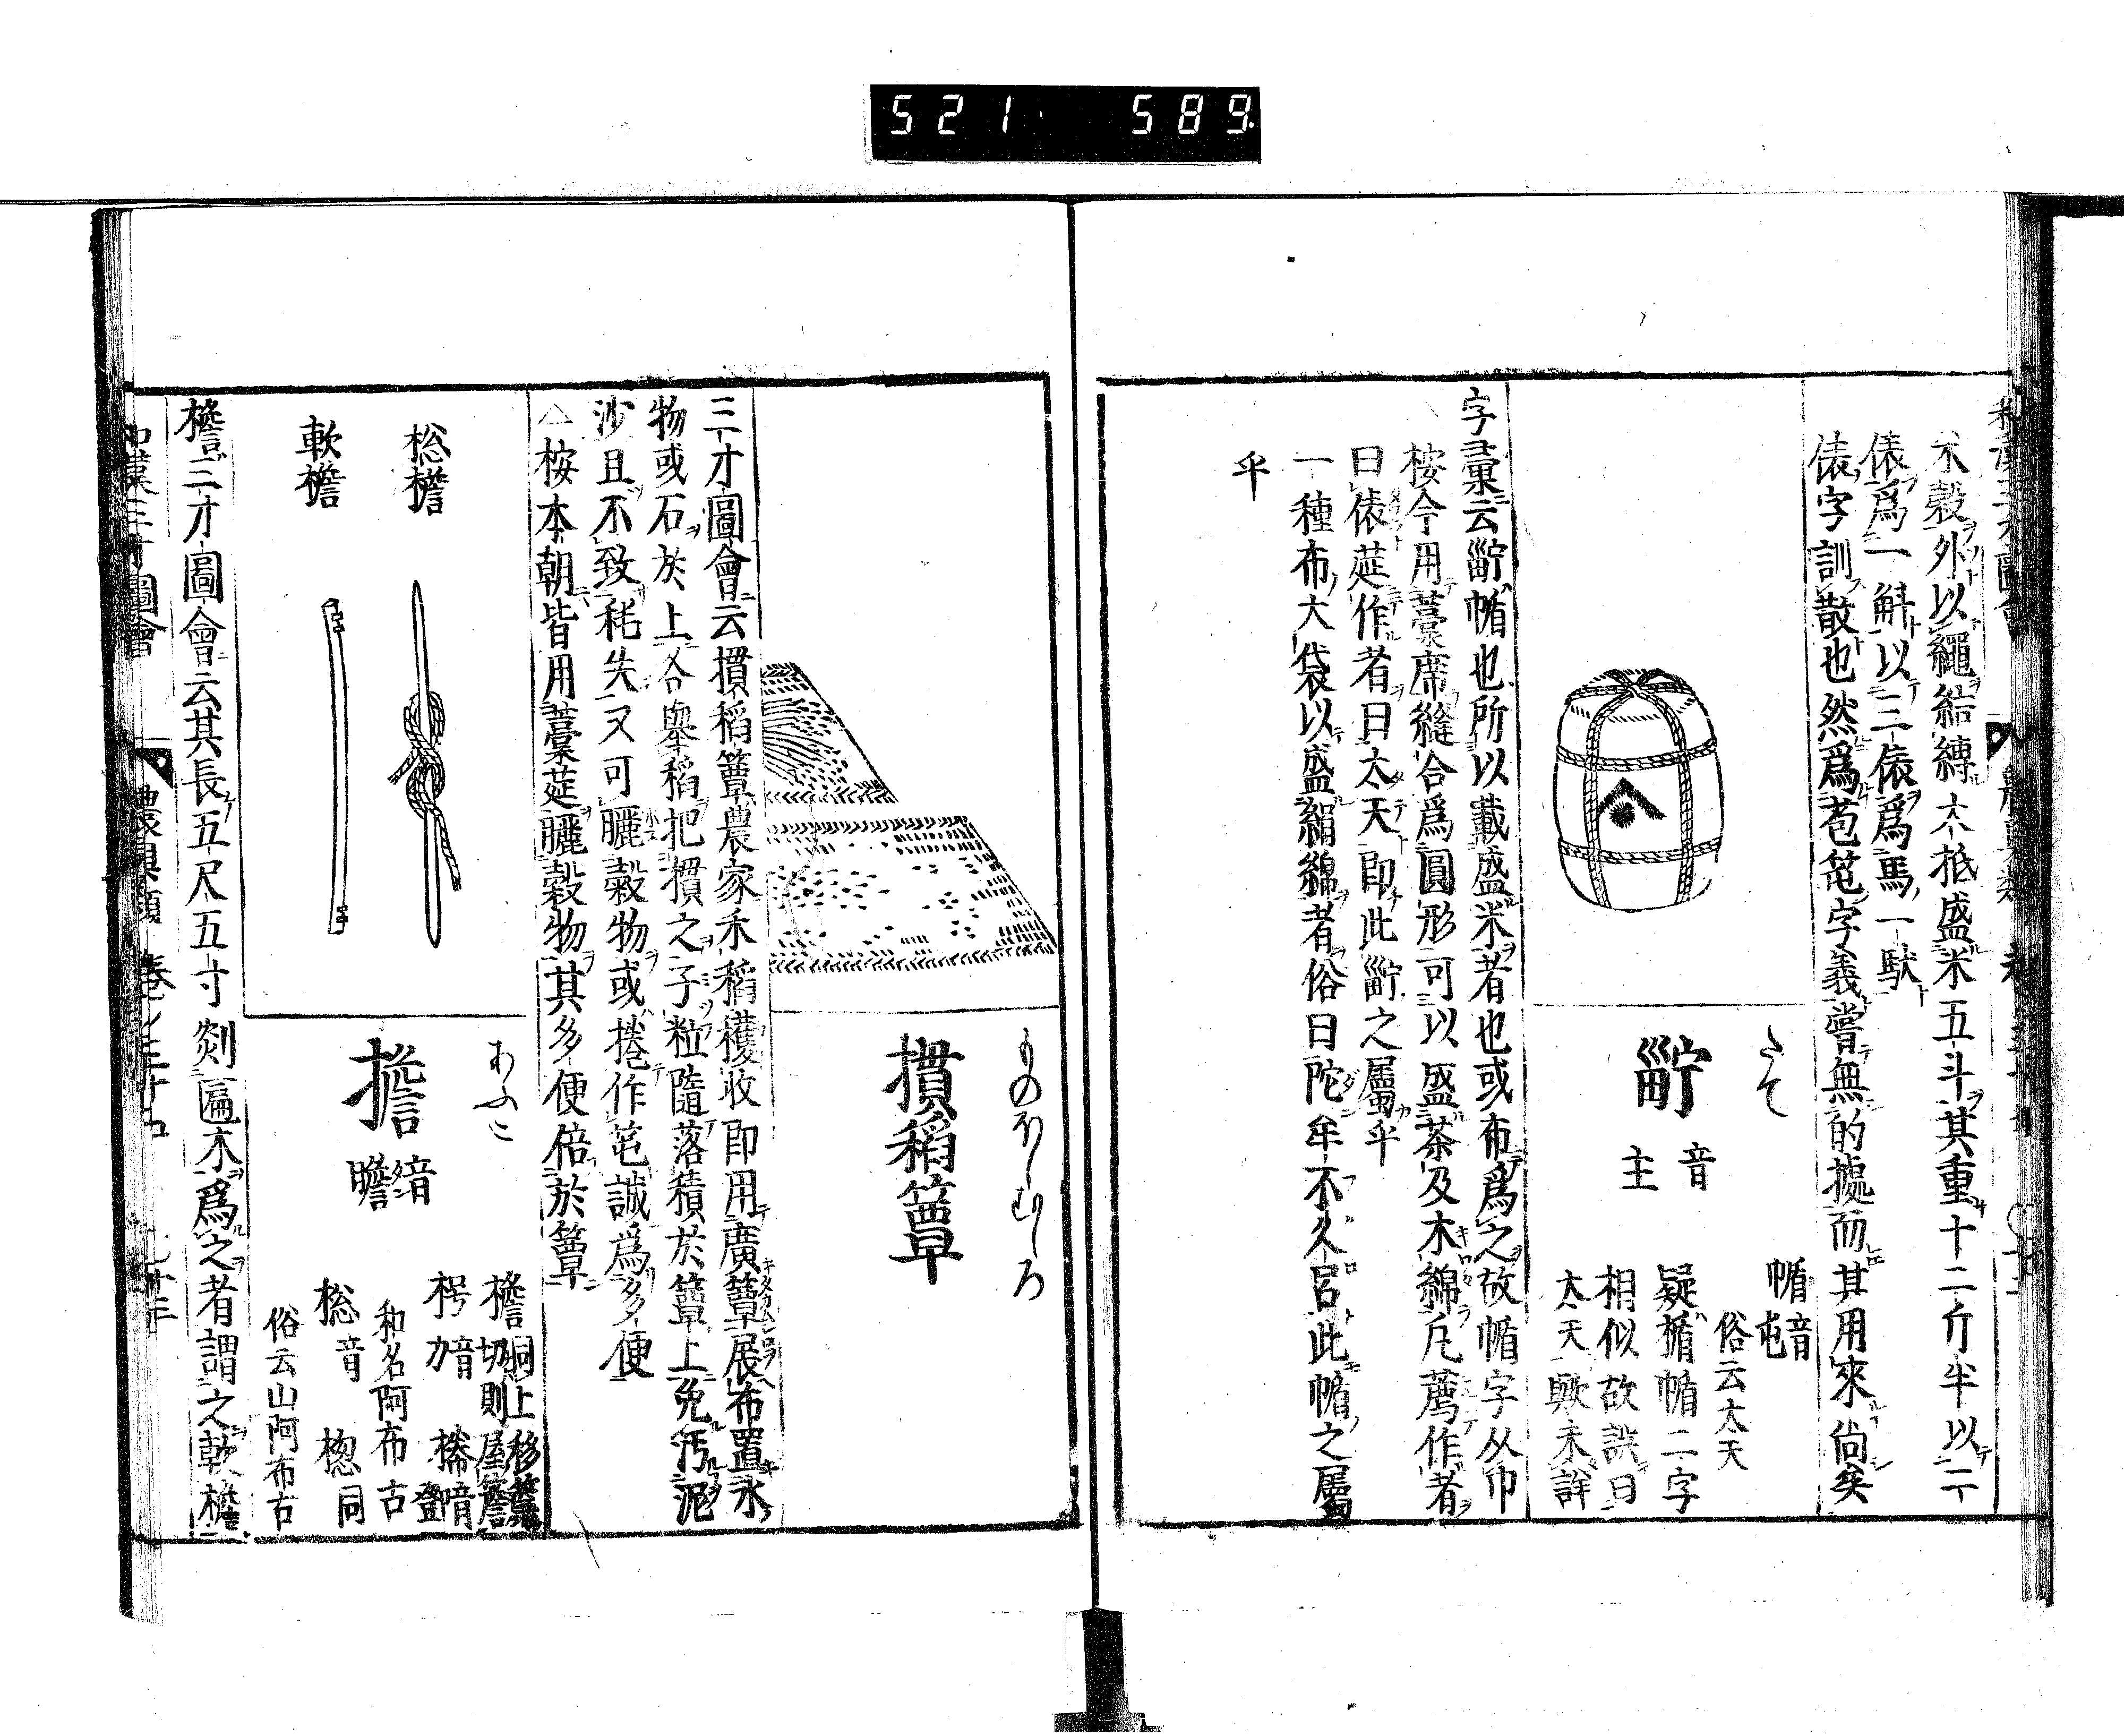 521 589
米穀外以繩結縛大抵盛米五斗其重十二斤半以二
俵爲一斛以三俵爲馬一駄
俵字訓散也然爲苞笣字義嘗無的據而其用來尙矣
たて
㽈
音主
㡒音屯
俗云太天
疑楯㡒二字
相似故訛曰
太天歟未詳
字彙云㽈㡒也所以載盛米者也或布爲之故㡒字从巾
按今用藁席縫合爲圓形可以盛茶及木綿凡薦作者
曰俵莚作者曰太天卽此㽈之屬乎
一種布大袋以盛絹綿者俗曰陀牟不久呂此㡒之屬
乎
ものほしむしろ
摜稻簟
三才圖會云摜稻簟農家禾稻穫收卽用廣簟展布置木
物或石於上各舉稻把摜之子粒隨落積於簟上免汚泥
沙且不致耗失又可曬穀物或捲作笣誠爲多便
△按本朝皆用藁莚曬穀物其多便倍於簟
棇檐
軟檐
あふこ
擔
音瞻
檐同上
枴音
和名阿布古
棇音 楤同
俗云山阿布古
檐三才圖會云其長五尺五寸剡匾木爲之者謂之軟檐
和漢三才圖會 農具類 卷ノ三十五